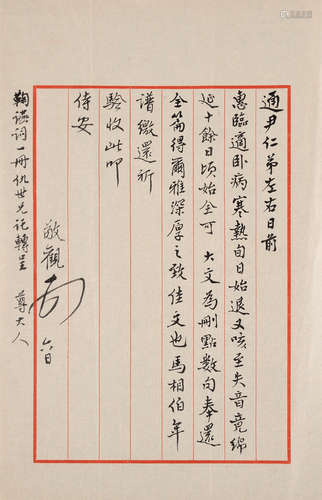 通尹仁弟左右日前
惠臨適卧病寒熱旬日始退又咳至失音竟綿
延十餘日頃始全可大文為刪點數句奉還
全篇得爾雅深厚之致佳文也馬相伯年
譜繳還祈
驗收此叩
侍安
敬觀
六日
鞠讌詞一冊仇世兄託轉呈 尊大人